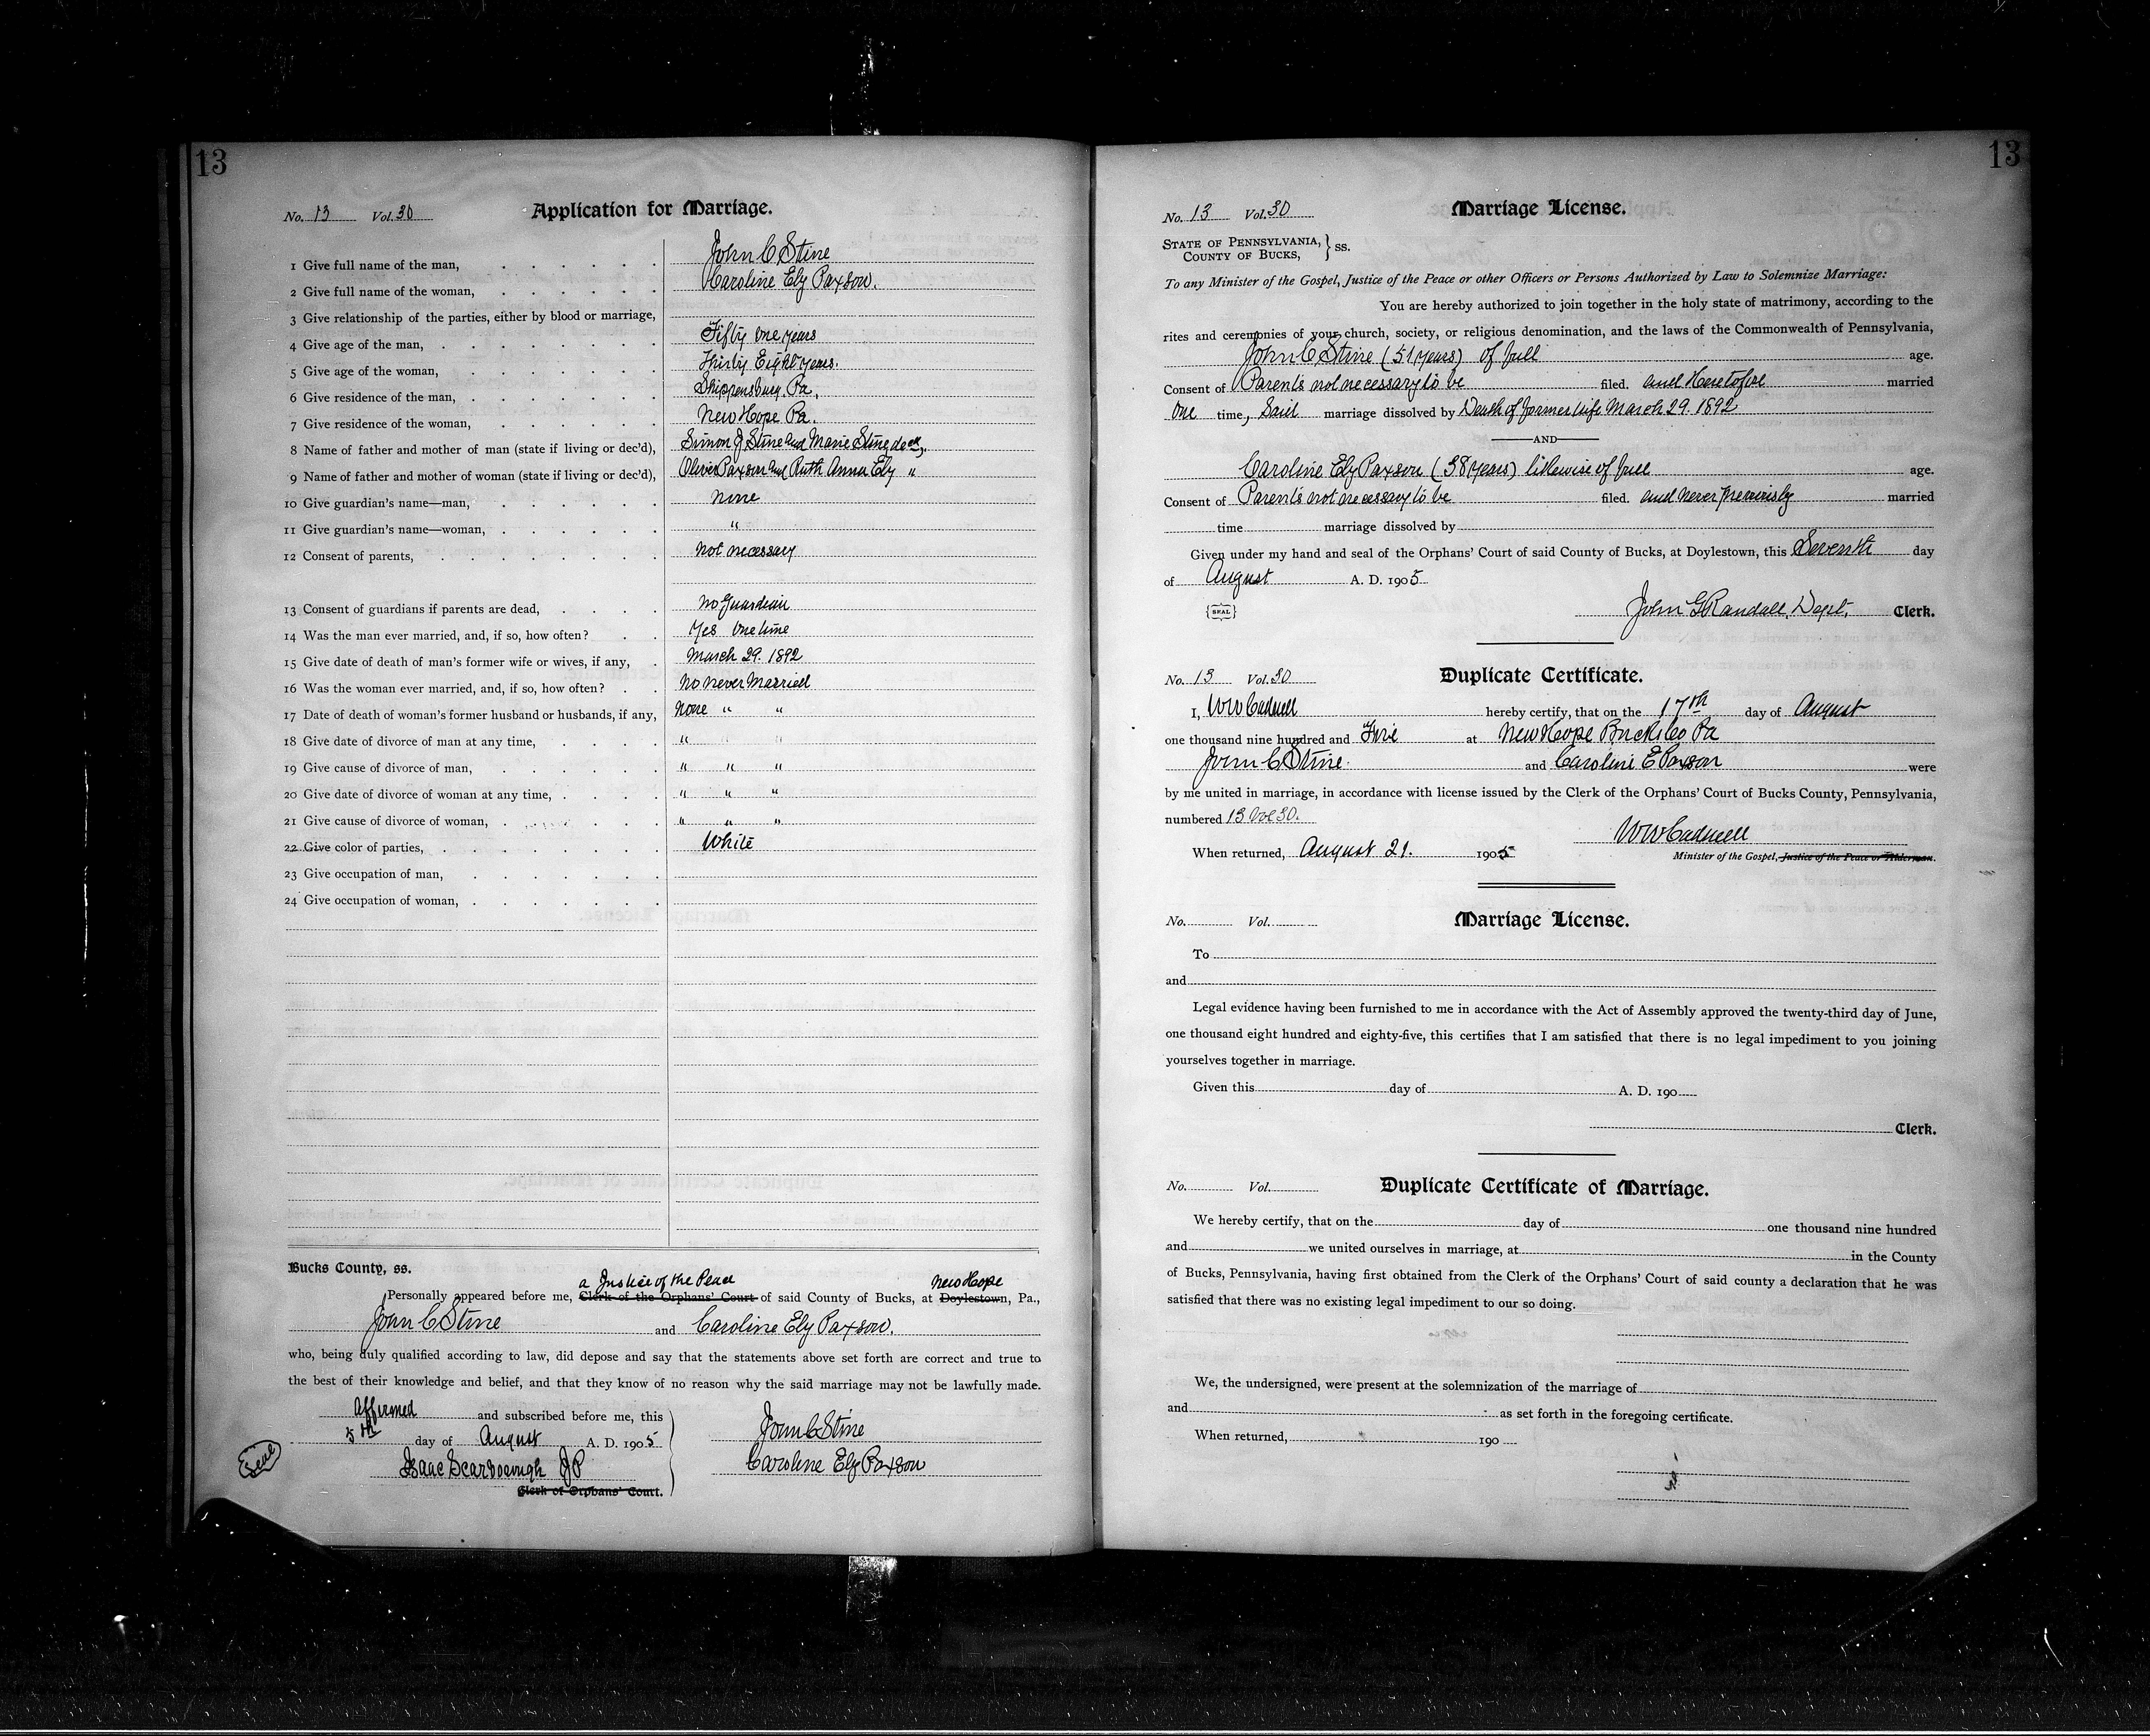 13
No. 13 Vol. 30 Application for Marriage.
1 Give full name of the man, John C Stine
2 Give full name of the woman, Caroline Ely Paxson.
3 Give relationship of the parties, either by blood or marriage,
4 Give age of the man, Fifty One years
5 Give age of the woman, Thirty Eight years.
6 Give residence of the man, Shippensburg Pa,
7 Give residence of the woman, New Hope Pa.
8 Name of father and mother of man (state if living or dec'd), Simon J Stine and Marie Stine decd,
9 Name of father and mother of woman (state if living or dec'd), Oliver Paxson and Ruth Anna Ely "
10 Give guardian's name—man, None
11 Give guardian's name—woman, "
12 Consent of parents, Not necessary
13 Consent of guardians if parents are dead, No Guardian
14 Was the man ever married, and, if so, how often? Yes One time
15 Give date of death of man's former wife or wives, if any, March 29. 1892
16 Was the woman ever married, and, if so, how often? No never Married
17 Date of death of woman's former husband or husbands, if any, None " "
18 Give date of divorce of man at any time, " " "
19 Give cause of divorce of man, " " "
20 Give date of divorce of woman at any time, " " "
21 Give cause of divorce of woman, " " "
22 Give color of parties, White
23 Give occupation of man,
24 Give occupation of woman,
Bucks County, ss.
a Justice of the Peace New Hope
Personally appeared before me, Clerk of the Orphans' Court of said County of Bucks, at Doylestown, Pa.,
John C Stine and Caroline Ely Paxson.
who, being duly qualified according to law, did depose and say that the statements above set forth are correct and true to
the best of their knowledge and belief, and that they know of no reason why the said marriage may not be lawfully made.
Affirmed and subscribed before me, this
5th day of August A. D. 1905
John C Stine
Seal
Isaac Scarborough JP
Caroline Ely Paxson
Clerk of Orphans' Court.
13
No. 13 Vol. 30 Marriage License.
STATE OF PENNSYLVANIA,
COUNTY OF BUCKS, } ss.
To any Minister of the Gospel, Justice of the Peace or other Officers or Persons Authorized by Law to Solemnize Marriage:
You are hereby authorized to join together in the holy state of matrimony, according to the
rites and ceremonies of your church, society, or religious denomination, and the laws of the Commonwealth of Pennsylvania,
John C Stine (51 years) of full age.
Consent of Parents not necessary to be filed. and Heretofore married
One time, Said marriage dissolved by Death of former wife March 29. 1892
AND
Caroline Ely Paxson (38 years) likewise of full age.
Consent of Parents not necessary to be filed. and never previously married
time marriage dissolved by
Given under my hand and seal of the Orphans' Court of said County of Bucks, at Doylestown, this Seventh day
of August A. D. 1905
{SEAL} John G Randall, Dept. Clerk.
No. 13 Vol. 30 Duplicate Certificate.
I, W W Cadwell hereby certify, that on the 17th day of August
one thousand nine hundred and Five at New Hope Bucks Co Pa
John C Stine. and Caroline E Paxson were
by me united in marriage, in accordance with license issued by the Clerk of the Orphans' Court of Bucks County, Pennsylvania,
numbered 13 Vol 30.
W W Cadwell
When returned, August 21. 1905
Minister of the Gospel, Justice of the Peace or Alderman.
No. Vol. Marriage License.
To
and
Legal evidence having been furnished to me in accordance with the Act of Assembly approved the twenty-third day of June,
one thousand eight hundred and eighty-five, this certifies that I am satisfied that there is no legal impediment to you joining
yourselves together in marriage.
Given this day of A. D. 190
Clerk.
No. Vol. Duplicate Certificate of Marriage.
We hereby certify, that on the day of one thousand nine hundred
and we united ourselves in marriage, at in the County
of Bucks, Pennsylvania, having first obtained from the Clerk of the Orphans' Court of said county a declaration that he was
satisfied that there was no existing legal impediment to our so doing.
We, the undersigned, were present at the solemnization of the marriage of
and as set forth in the foregoing certificate.
When returned, 190